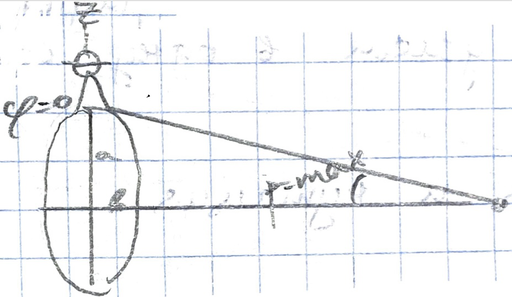 Z
φ=0
a
b
r-max